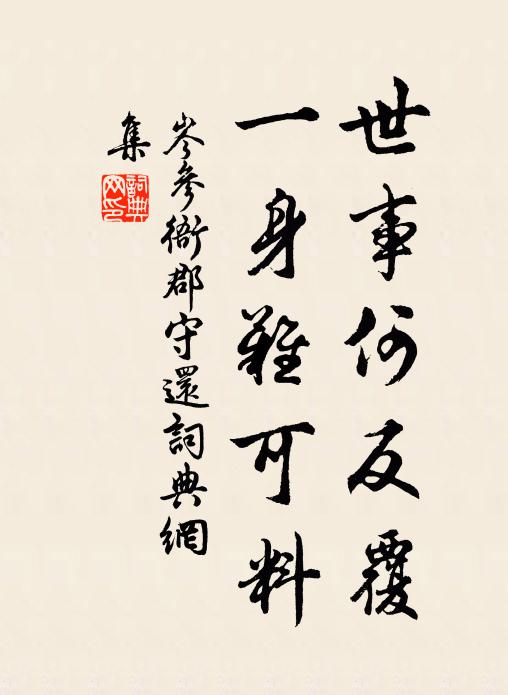 世事何反覆
一身難可料
岑參衙郡守還詞典網
集
詞典
网印